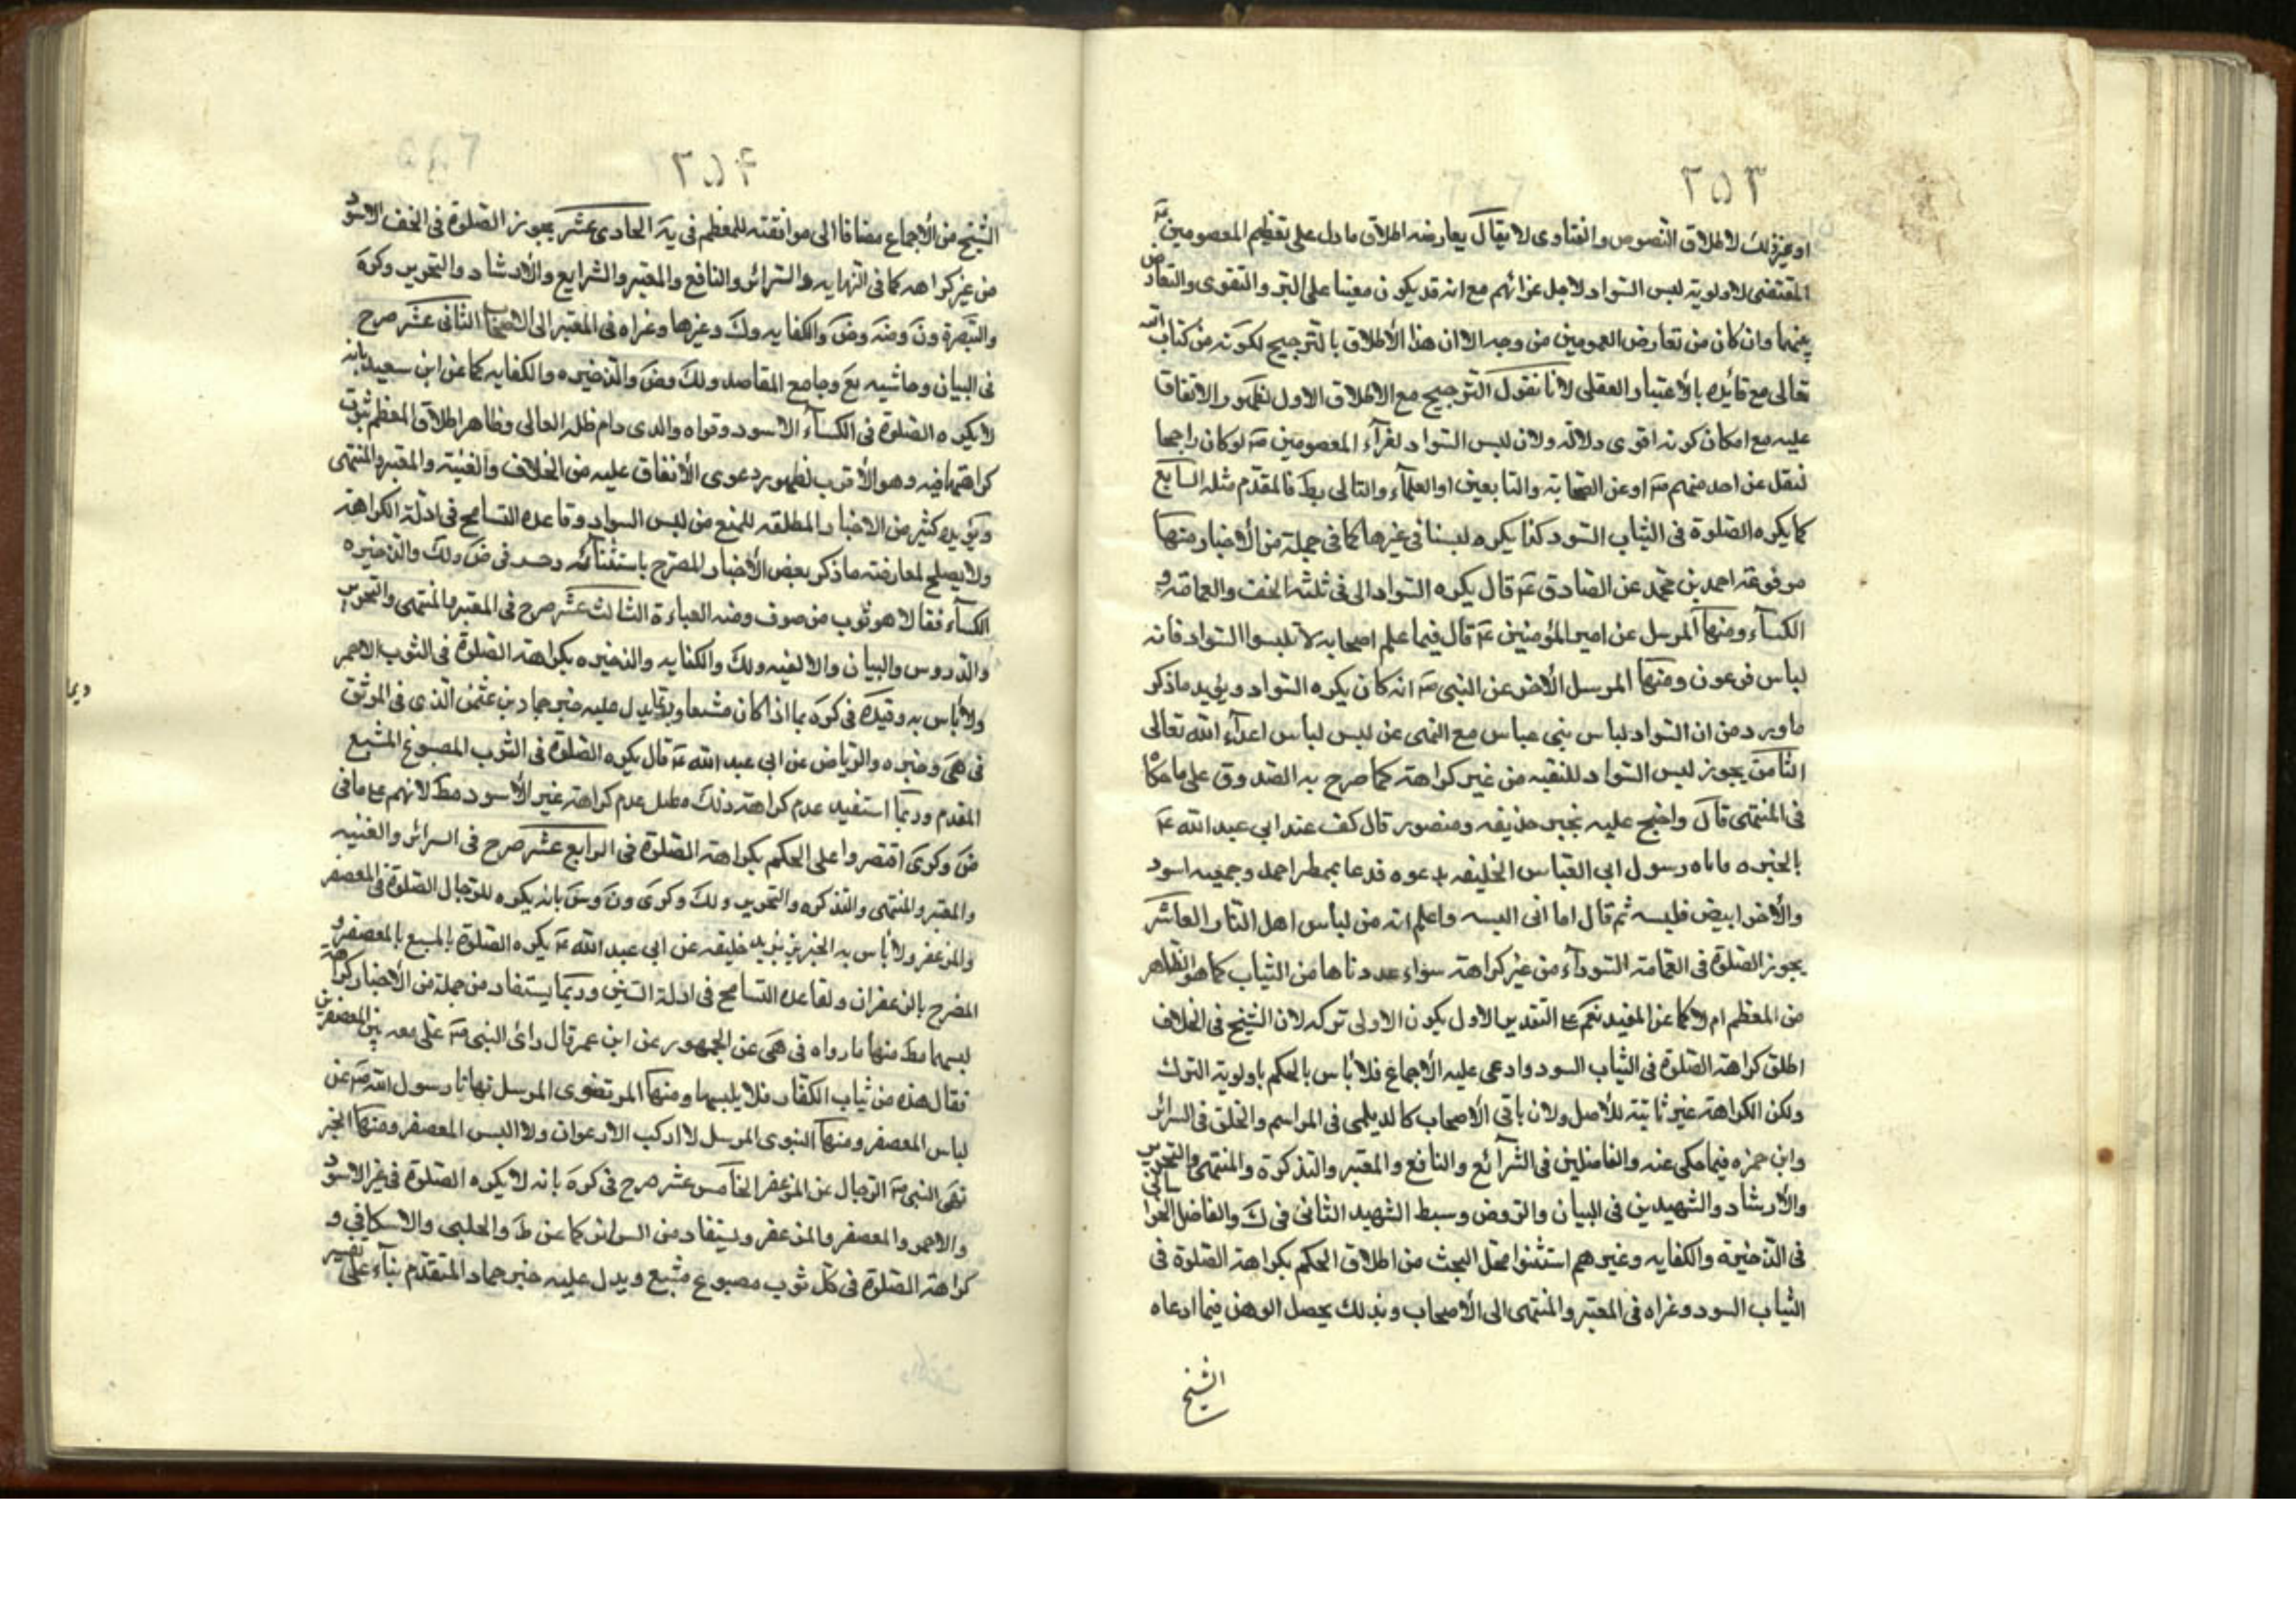 ٣٥٣
او غير ذلك لاطلاق النصوص والفتاوى لا يقال يعارضه اطلاق ما دل على تعظيم المعصومين
المقتضى لاولوية لبس السواد لاجل عزائهم مع انه قد يكون معينا على البر والتقوى والتعارض
بينهما وان كان من تعارض العمومين من وجه الا ان هذا الاطلاق بالترجيح لكونه من كتاب الله
تعالى مع تائيده بالاعتبار العقلى لانا نقول الترجيح مع الاطلاق الاول لظهور الاتفاق
عليه مع امكان كونه اقوى دلالة ولان لبس السواد لعزآء المعصومين عه لو كان راجحا
لنقل عن احد منهم عه او عن الصحابة والتابعين او العلمآء والتالى بط فالمقدم مثله السابع
كما يكره الصلوة فى الثياب السود كذا يكره لبسنا فى غيرها كما فى جملة من الاخبار منها
مرفوعة احمد بن محمد عن الصادق عه قال يكره السواد الى فى ثلثة الخف والعمامة و
الكسآء ومنها المرسل عن امير المؤمنين عه قال فيما علم اصحابه لا تلبسوا السواد فانه
لباس فرعون ومنها المرسل الاخر عن النبى صه انه كان يكره السواد ويؤيد ما ذكر
ما ورد من ان السواد لباس بنى عباس مع النهى عن لبس لباس اعدآء الله تعالى
الثامن يجوز لبس السواد للتقيه من غير كراهة كما صرح به الصدوق على ما حكاه
فى المنتهى قال واحتج عليه بخبر حذيفه ومنصور قال كنت عند ابي عبد الله عه
بالحيره فاتاه رسول ابى العباس الخليفه يدعوه فدعا بممطر احمد وجهيه اسود
والاخر ابيض فلبسه ثم قال اما انى البسه واعلم انه من لباس اهل النار العاشر
يجوز الصلوة فى العمامة السودآء من غير كراهة سواء عددناها من الثياب كما هو الظاهر
من المعظم ام لا كما عن المفيد نعم على التقدير الاول يكون الاولى تركه لان الشيخ فى الخلاف
اطلق كراهة الصلوة فى الثياب السود وادعى عليه الاجماع فلا بأس بالحكم باولوية الترك
ولكن الكراهة غير ثابتة للاصل ولان باقى الاصحاب كالديلمى فى المراسم والحلى فى السرائر
وابن حمزه فيما حكى عنه والفاضلين فى الشرآئع والنافع والمعتبر والتذكرة والمنتهى والتحرير
والارشاد والشهيدين فى البيان والروض وسبط الشهيد الثانى فى ك والفاضل الخراسانى
فى الذخيرة والكفايه وغيرهم استثنوا محل البحث من اطلاق الحكم بكراهة الصلوة فى
الثياب السود وعزاه فى المعتبر والمنتهى الى الاصحاب وبذلك يحصل الوهن فيما ادعاه
الشيخ
٣٥۴
الشيخ من الاجماع مضافا الى موافقته للمعظم فى يه الحادى عشر يجوز الصلوة فى الخف الاسود
من غير كراهه كما فى النهايه والسرائر والنافع والمعتبر والشرايع والارشاد والتحرير وكره
والتبصرة ون وضه وض والكفايه وك وغيرها وعزاه فى المعتبر الى الاصحاب الثانى عشر صرح
فى البيان وحاشيه يع وجامع المقاصد ولك وض والذخيره والكفايه كما عن ابن سعيد بانه
لا يكره الصلوة فى الكسآء الاسود وقواه والدى دام ظله العالى وظاهر اطلاق المعظم ثبوت
كراهتها فيه وهو الاقرب لظهور دعوى الاتفاق عليه من الخلاف والغنية والمعتبر والمنتهى
ويؤيده كثير من الاخبار المطلقه للمنع من لبس السواد وقاعده التسامح فى ادلة الكراهة
ولا يصلح لمعارضته ما ذكر بعض الاخبار المصرح باستثنائه وحد فى ض ولك والذخيره
الكسآء فقالا هو ثوب من صوف ومنه العباءة الثالث عشر صرح فى المعتبر والمنتهى والتحرير
والدروس والبيان والالفيه ولك والكفايه والذخيره بكراهة الصلوة فى الثوب الاحمر
ولا بأس به وقيده فى كره بما اذا كان مشبعا وربما يدل عليه خبر حماد بن عثمن الذى فى الموثق
فى هى وخيره والرياض عن ابى عبد الله عه قال يكره الصلوة فى الثوب المصبوغ المشبع
المقدم وربما استفيد عدم كراهة ذلك عدم كراهة غير الاسود مط لانهم على ما فى
ض وكرى اقتصروا على الحكم بكراهة الصلوة فى الرابع عشر صرح فى السرائر والغنيه
والمعتبر والمنتهى والتذكره والتحرير ولك وكرى ون وس بانه يكره للرجال الصلوة فى المعصفر
والمزعفر ولا بأس به الخبر يزيد خليفه عن ابى عبد الله عه يكره الصلوة بالمشبع بالمعصفر و
المضرح بالزعفران ولقاعده التسامح فى ادلة السنن وربما يستفاد من جملة من الاخبار كراهة
لبسهما مط منها ما رواه فى هى عن الجمهور عن ابن عمر قال رأى النبى صه على معه ثوبين المعصفرين
فقال هذه من ثياب الكفار فلا يلبسها ومنها المرتضوى المرسل نهانا رسول الله صه عن
لباس المعصفر ومنها النبوى المرسل لا اركب الارجوان ولا البس المعصفر ومنها الخبر
نهى النبى صه الرجال عن المزعفر الخامس عشر صرح فى كره بانه لا يكره الصلوة فى غير الاسود
والاحمر والمعصفر والمزعفر ويستفاد من السرائر كما عن ط والحلبى والاسكافى و
كراهة الصلوة فى كل ثوب مصبوغ مشبع ويدل عليه خبر حماد المتقدم بنآء على تفسير